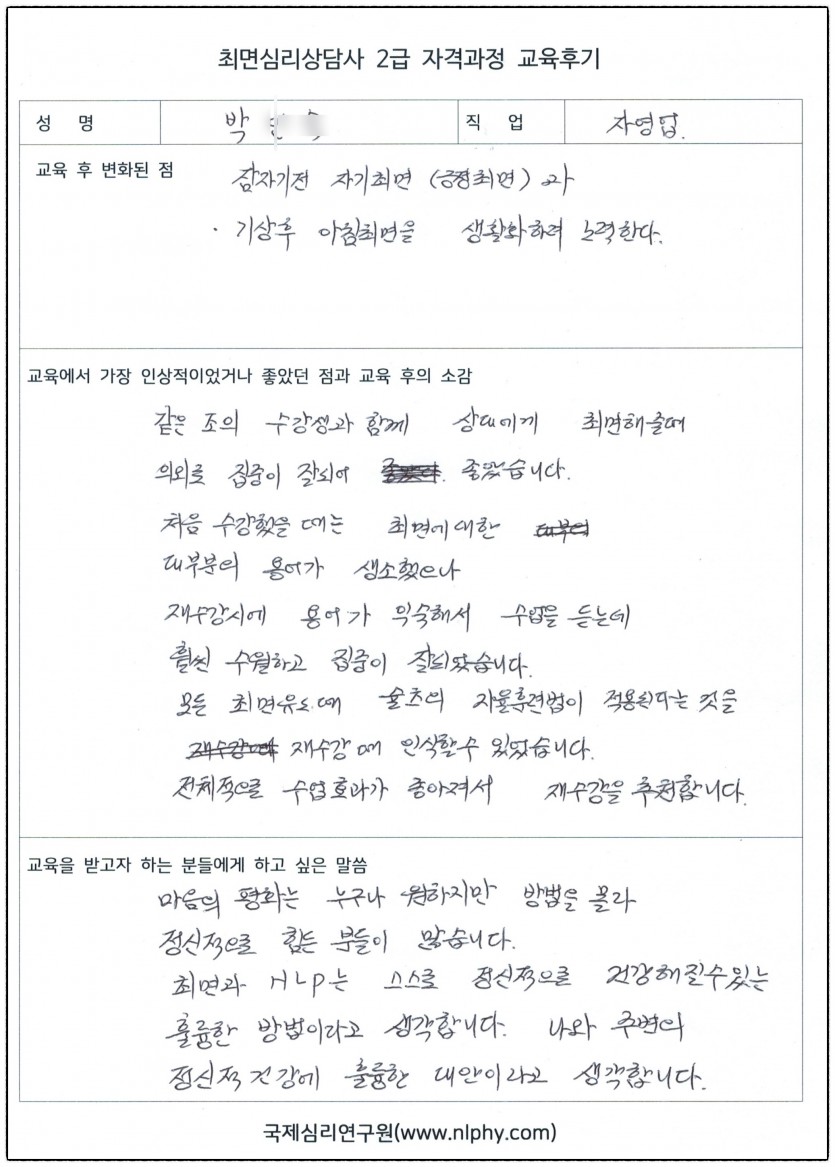 최면심리상담사 2급 자격과정 교육후기
성 명 박 직 업 자영업.
교육 후 변화된 점 잠자기전 자기최면 (긍정최면) 과
· 기상후 아침최면을 생활화하려 노력한다.
교육에서 가장 인상적이었거나 좋았던 점과 교육 후의 소감
같은 조의 수강생과 함께 상대에게 최면해줄때
의외로 집중이 잘되어 좋았습니다.
처음 수강했을 때는 최면에 대한
대부분의 용어가 생소했으나
재수강시에 용어가 익숙해서 수업을 듣는데
훨씬 수월하고 집중이 잘되었습니다.
모든 최면유도때 슐츠의 자율훈련법이 적용된다는 것을
재수강때 인식할수 있었습니다.
전체적으로 수업효과가 좋아져서 재수강을 추천합니다.
교육을 받고자 하는 분들에게 하고 싶은 말씀
마음의 평화는 누구나 원하지만 방법을 몰라
정신적으로 힘든 분들이 많습니다.
최면과 NLP는 스스로 정신적으로 건강해질수있는
훌륭한 방법이라고 생각합니다. 나와 주변의
정신적건강에 훌륭한 대안이라고 생각합니다.
국제심리연구원(www.nlphy.com)